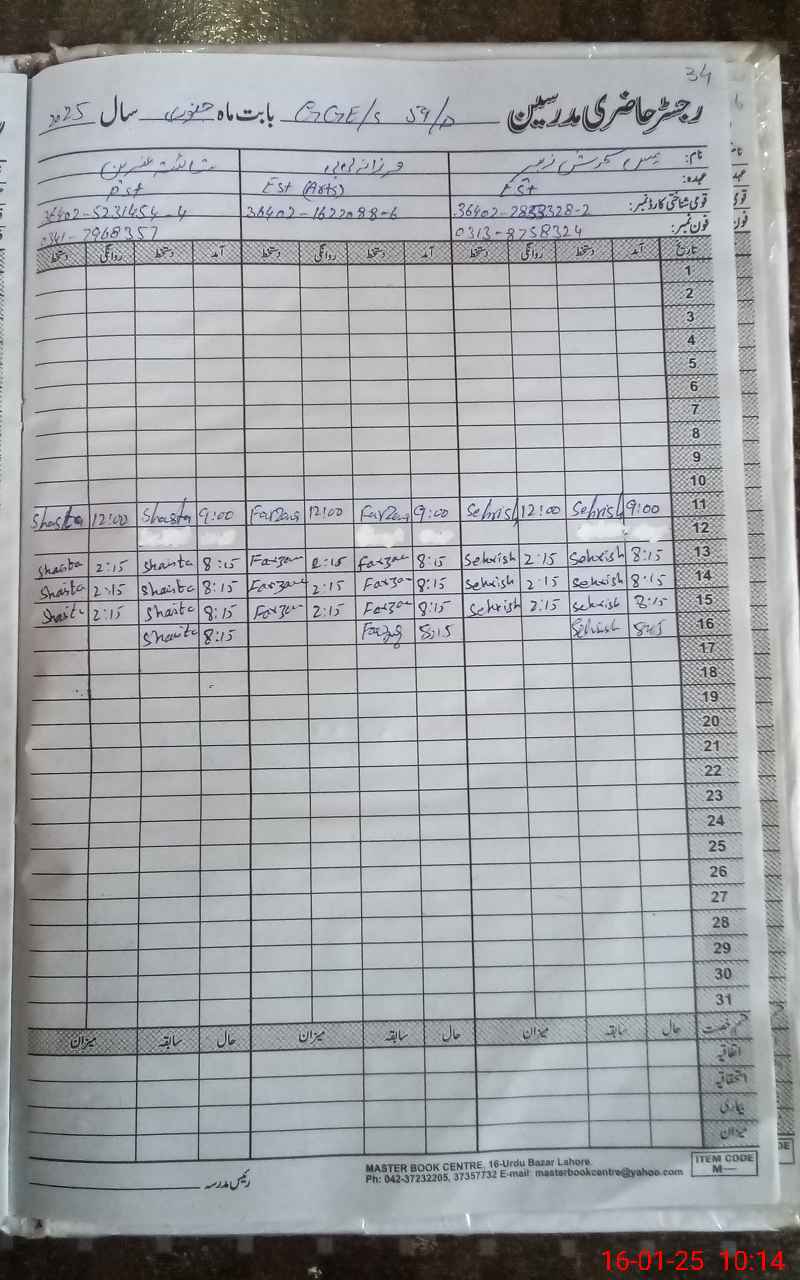 34
رجسٹر حاضری مدرسین GGE/S 59/D بابت ماہ جنوری سال 2025
نام: مس سحرش زہیر فرزانہ بی بی شائستہ عنبرین
عہدہ: EST EST (Arts) PST
قومی شناختی کارڈ نمبر: 36402-2858328-2 36402-1622098-6 36402-5231454-4
فون نمبر: 0313-8758324 0341-7968357
تاریخ آمد دستخط روانگی دستخط آمد دستخط روانگی دستخط آمد دستخط روانگی دستخط
1
2
3
4
5
6
7
8
9
10
11 9:00 Sehrish 12:00 Sehrish 9:00 Farzana 12:00 Farzana 9:00 Shaista 12:00 Shaista
12
13 8:15 Sehrish 2:15 Sehrish 8:15 Farzana 2:15 Farzana 8:15 Shaista 2:15 Shaista
14 8:15 Sehrish 2:15 Sehrish 8:15 Farzana 2:15 Farzana 8:15 Shaista 2:15 Shaista
15 8:15 Sehrish 2:15 Sehrish 8:15 Farzana 2:15 Farzana 8:15 Shaista 2:15 Shaista
16 8:15 Sehrish 8:15 Farzana 8:15 Shaista
17
18
19
20
21
22
23
24
25
26
27
28
29
30
31
قسم رخصت حال سابقہ میزان حال سابقہ میزان حال سابقہ میزان
اتفاقیہ
استحقاقیہ
بیماری
میزان
رئیس مدرسہ
MASTER BOOK CENTRE, 16-Urdu Bazar Lahore.
Ph: 042-37232205, 37357732 E-mail: masterbookcentre@yahoo.com
ITEM CODE
M—
16-01-25 10:14